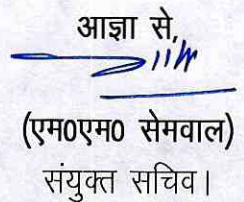 आज्ञा से,
(एम0एम0 सेमवाल)
संयुक्त सचिव।